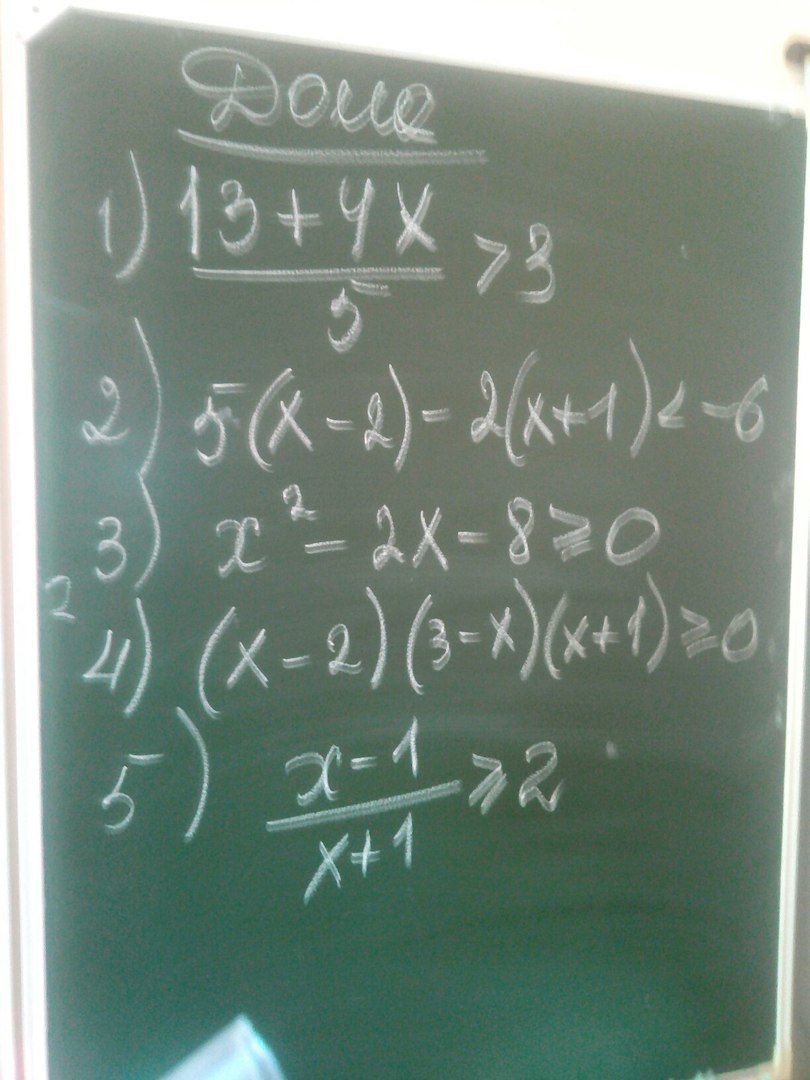 Дома
1) 13+4x
5
>3
2) 5(x-2)-2(x+1)<-6
3) x²-2x-8⩾0
2
4) (x-2)(3-x)(x+1)⩾0
5) x-1
x+1
⩾2